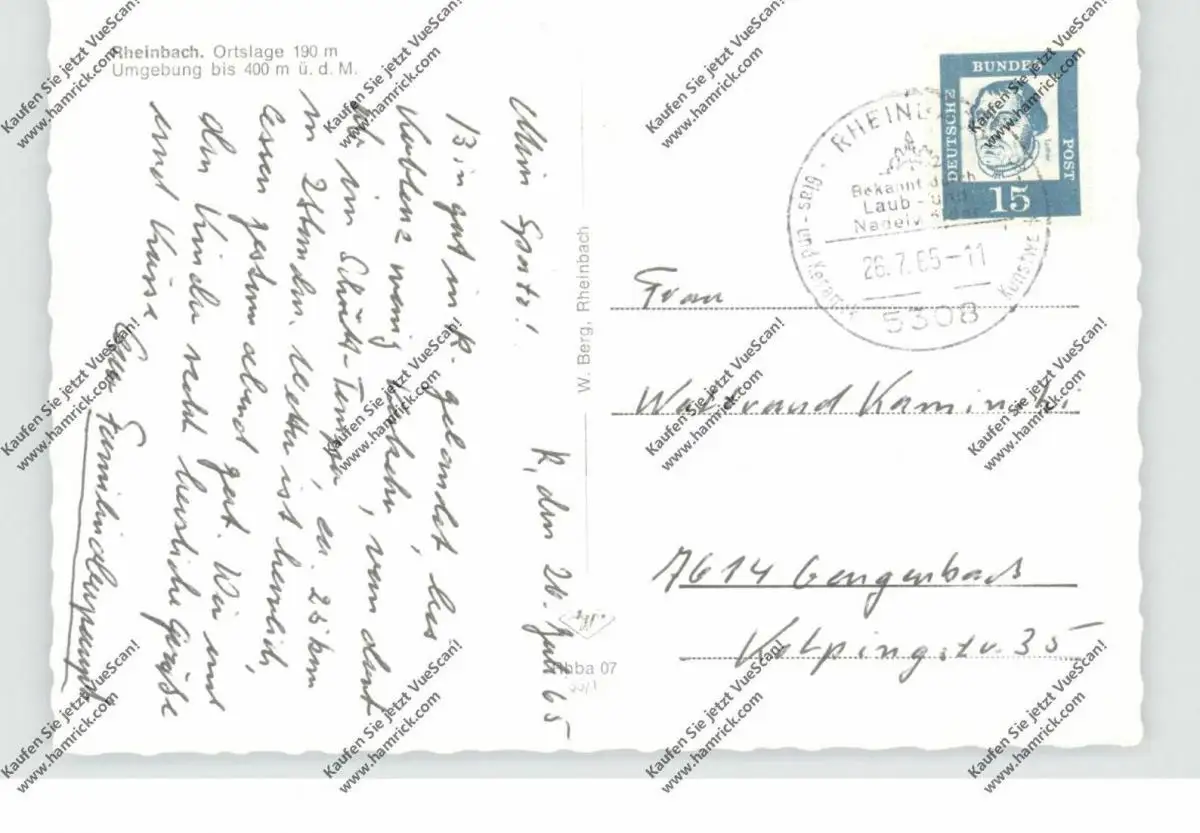 Rheinbach. Ortslage 190 m
Umgebung bis 400 m ü. d. M.
R, den 26. Juli 65
Mein Spatz!
Bin gut in R. gelandet, bis
Koblenz wenig Verkehr, von dort
ab im Schritt-Tempo
in 2 Stunden, ca. 25 km
Wetter ist herrlich,
gestern abend gut. Wir und
die Kinder recht herzliche Grüße
und Küsse
Euer
W. Berg, Rheinbach
Rbba 07
DEUTSCHE BUNDES POST
Luther
15
RHEINB
Bekannt durch
Laub - und
Nadelwälder
Glas - und Keramik
26.7.65-11
5308
Frau
Waltraud Kaminski
7614 Gengenbach
Kolpingstr. 35
Kaufen Sie jetzt VueScan!
www.hamrick.com